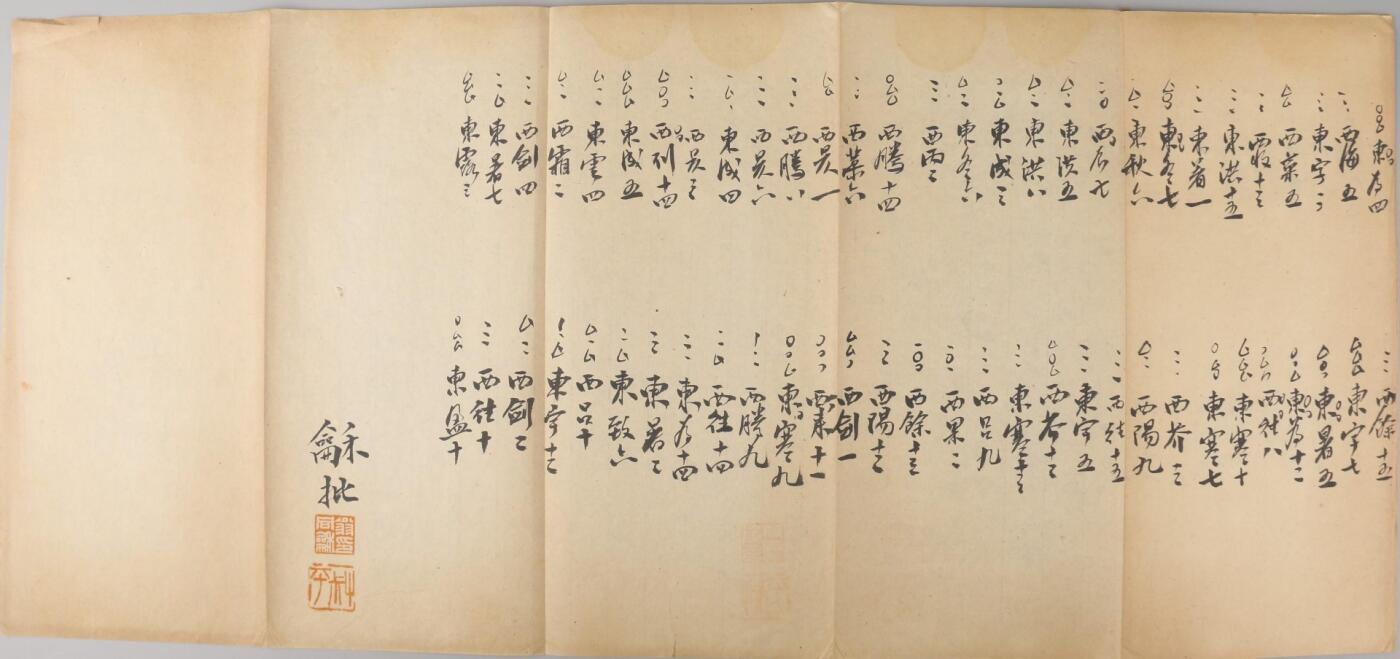 東为四
西海五
東宇二
西菜五
十三
東洪十五
東暑一
東冬七
東秋六
西辰七
東洪五
東洪八
東成三
東冬六
西丙三
西騰十四
西菜六
西 一
西騰八
西 六
東成四
西 三
西列十四
東成五
東雲四
西霜二
西劍四
東暑七
東露三
西餘十五
東宇七
東暑五
東为十二
西往八
東寒十
東寒七
西芥十三
西陽九
西往十五
東宇五
西芥十三
東寒十三
西呂九
西果二
西餘十三
西陽十三
西劍一
西來十一
東寒九
西騰九
西往十四
東为十四
東暑三
東致六
西呂十
東宇十三
西劍三
西往十
東盈十
龢批
翁同龢印